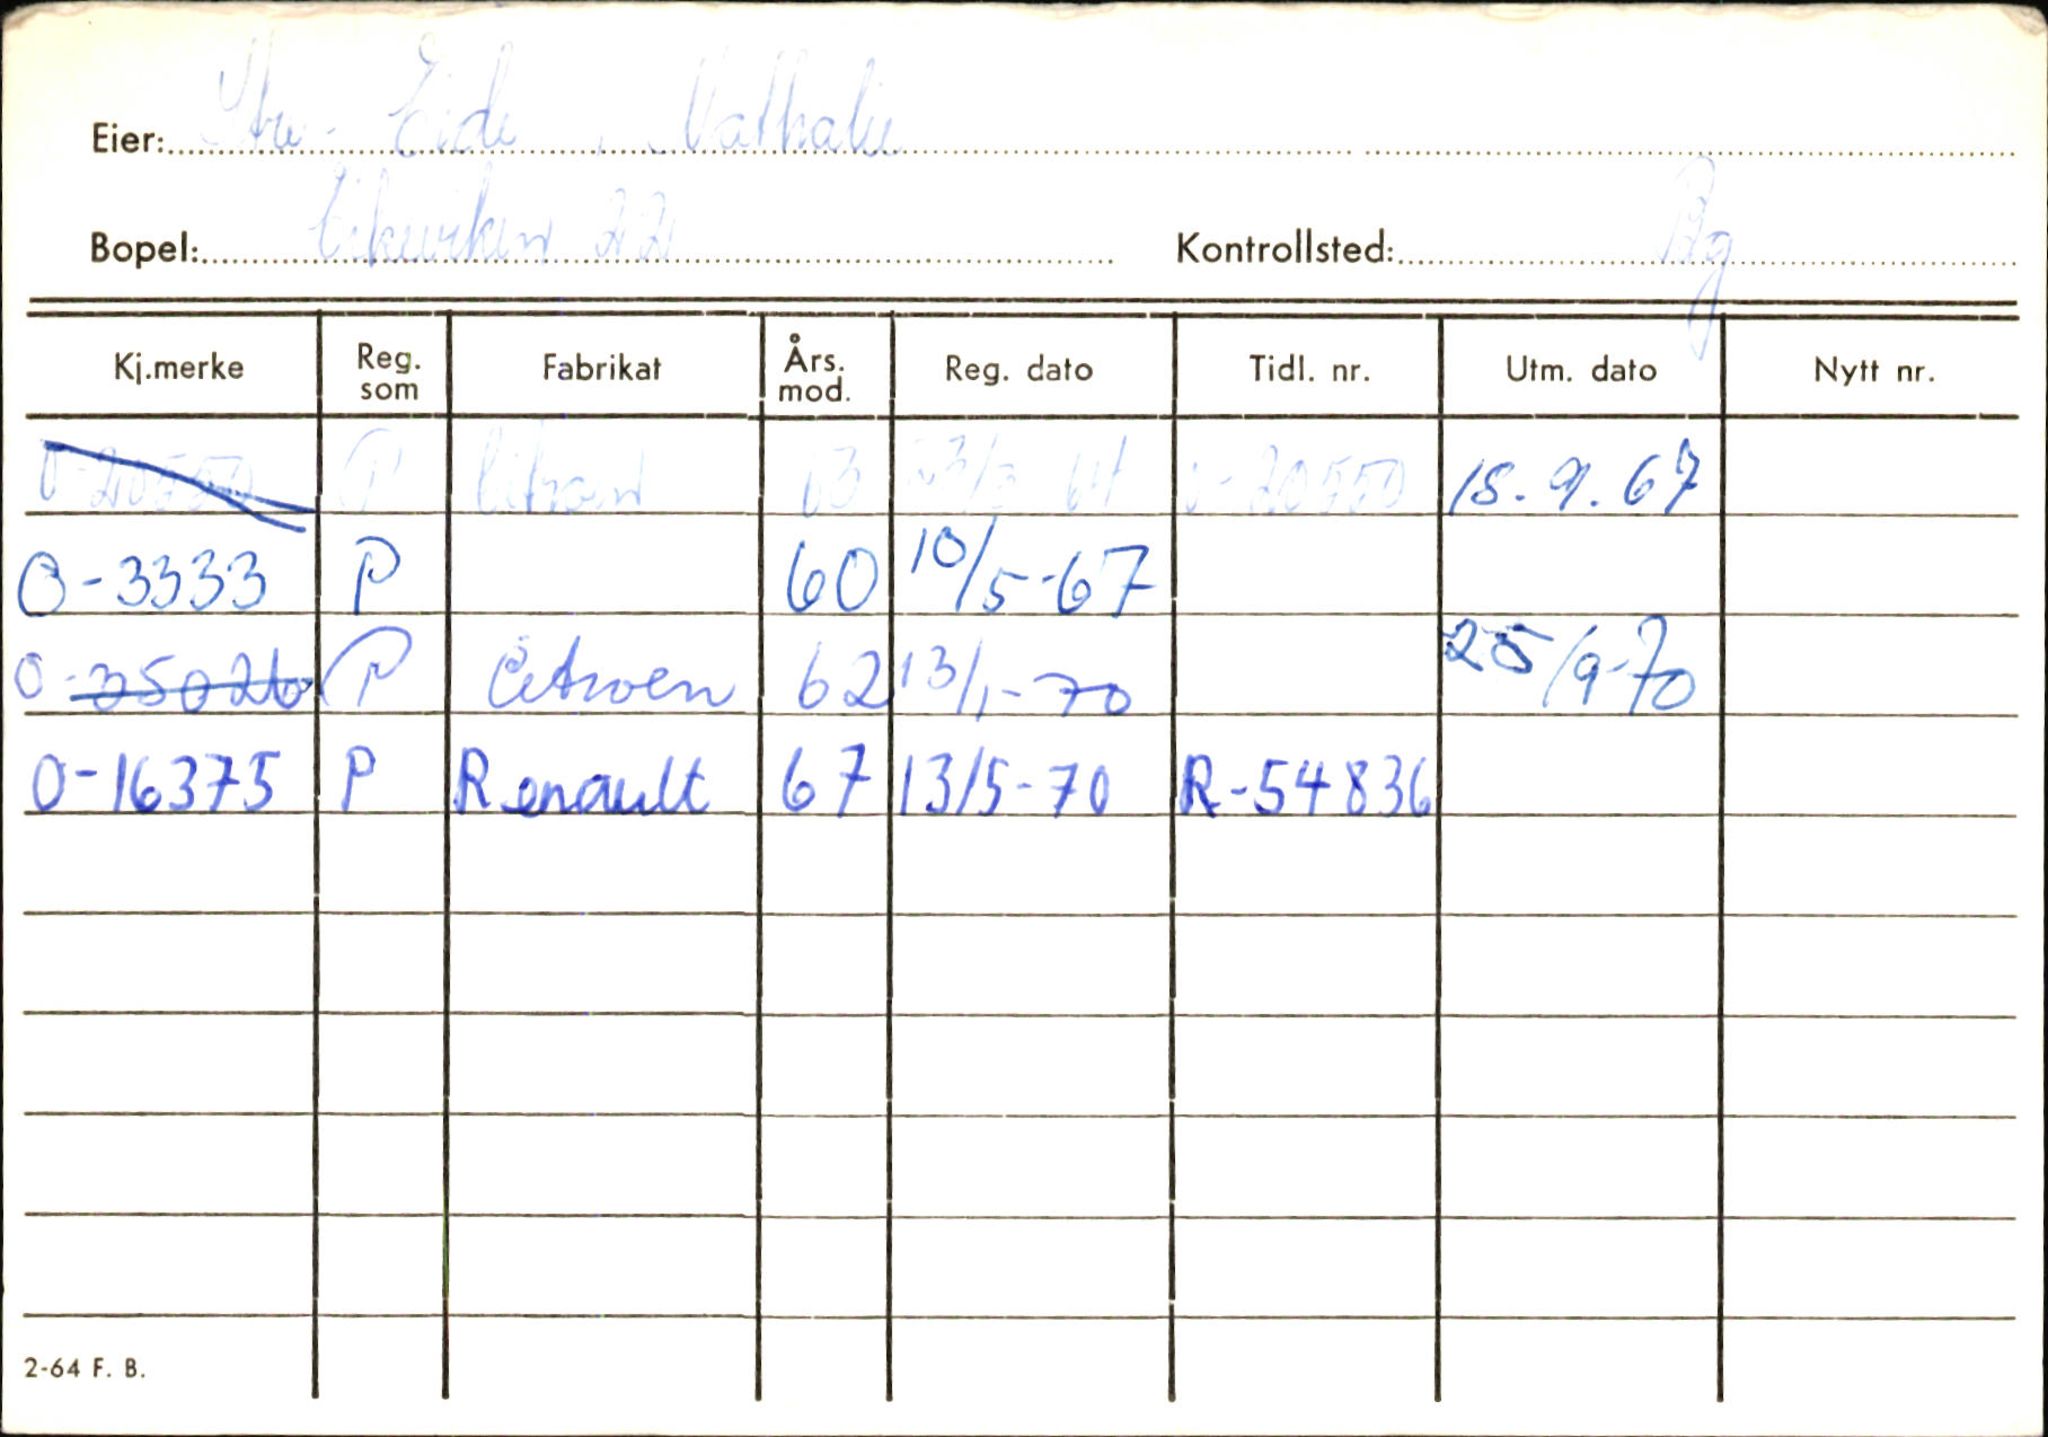 Eier: Eide, Nathalie
Bopel: 22 Kontrollsted: Bg
Kj.merke Reg. som Fabrikat Års. mod. Reg. dato Tidl. nr. Utm. dato Nytt nr.
O-20550 P Citroen 63 64 O-20550 18.9.67
O-3333 P 60 10/5-67
O-35026 P Citroen 62 13/1-70 25/9-70
O-16375 P Renault 67 13/5-70 R-54836
2-64 F. B.